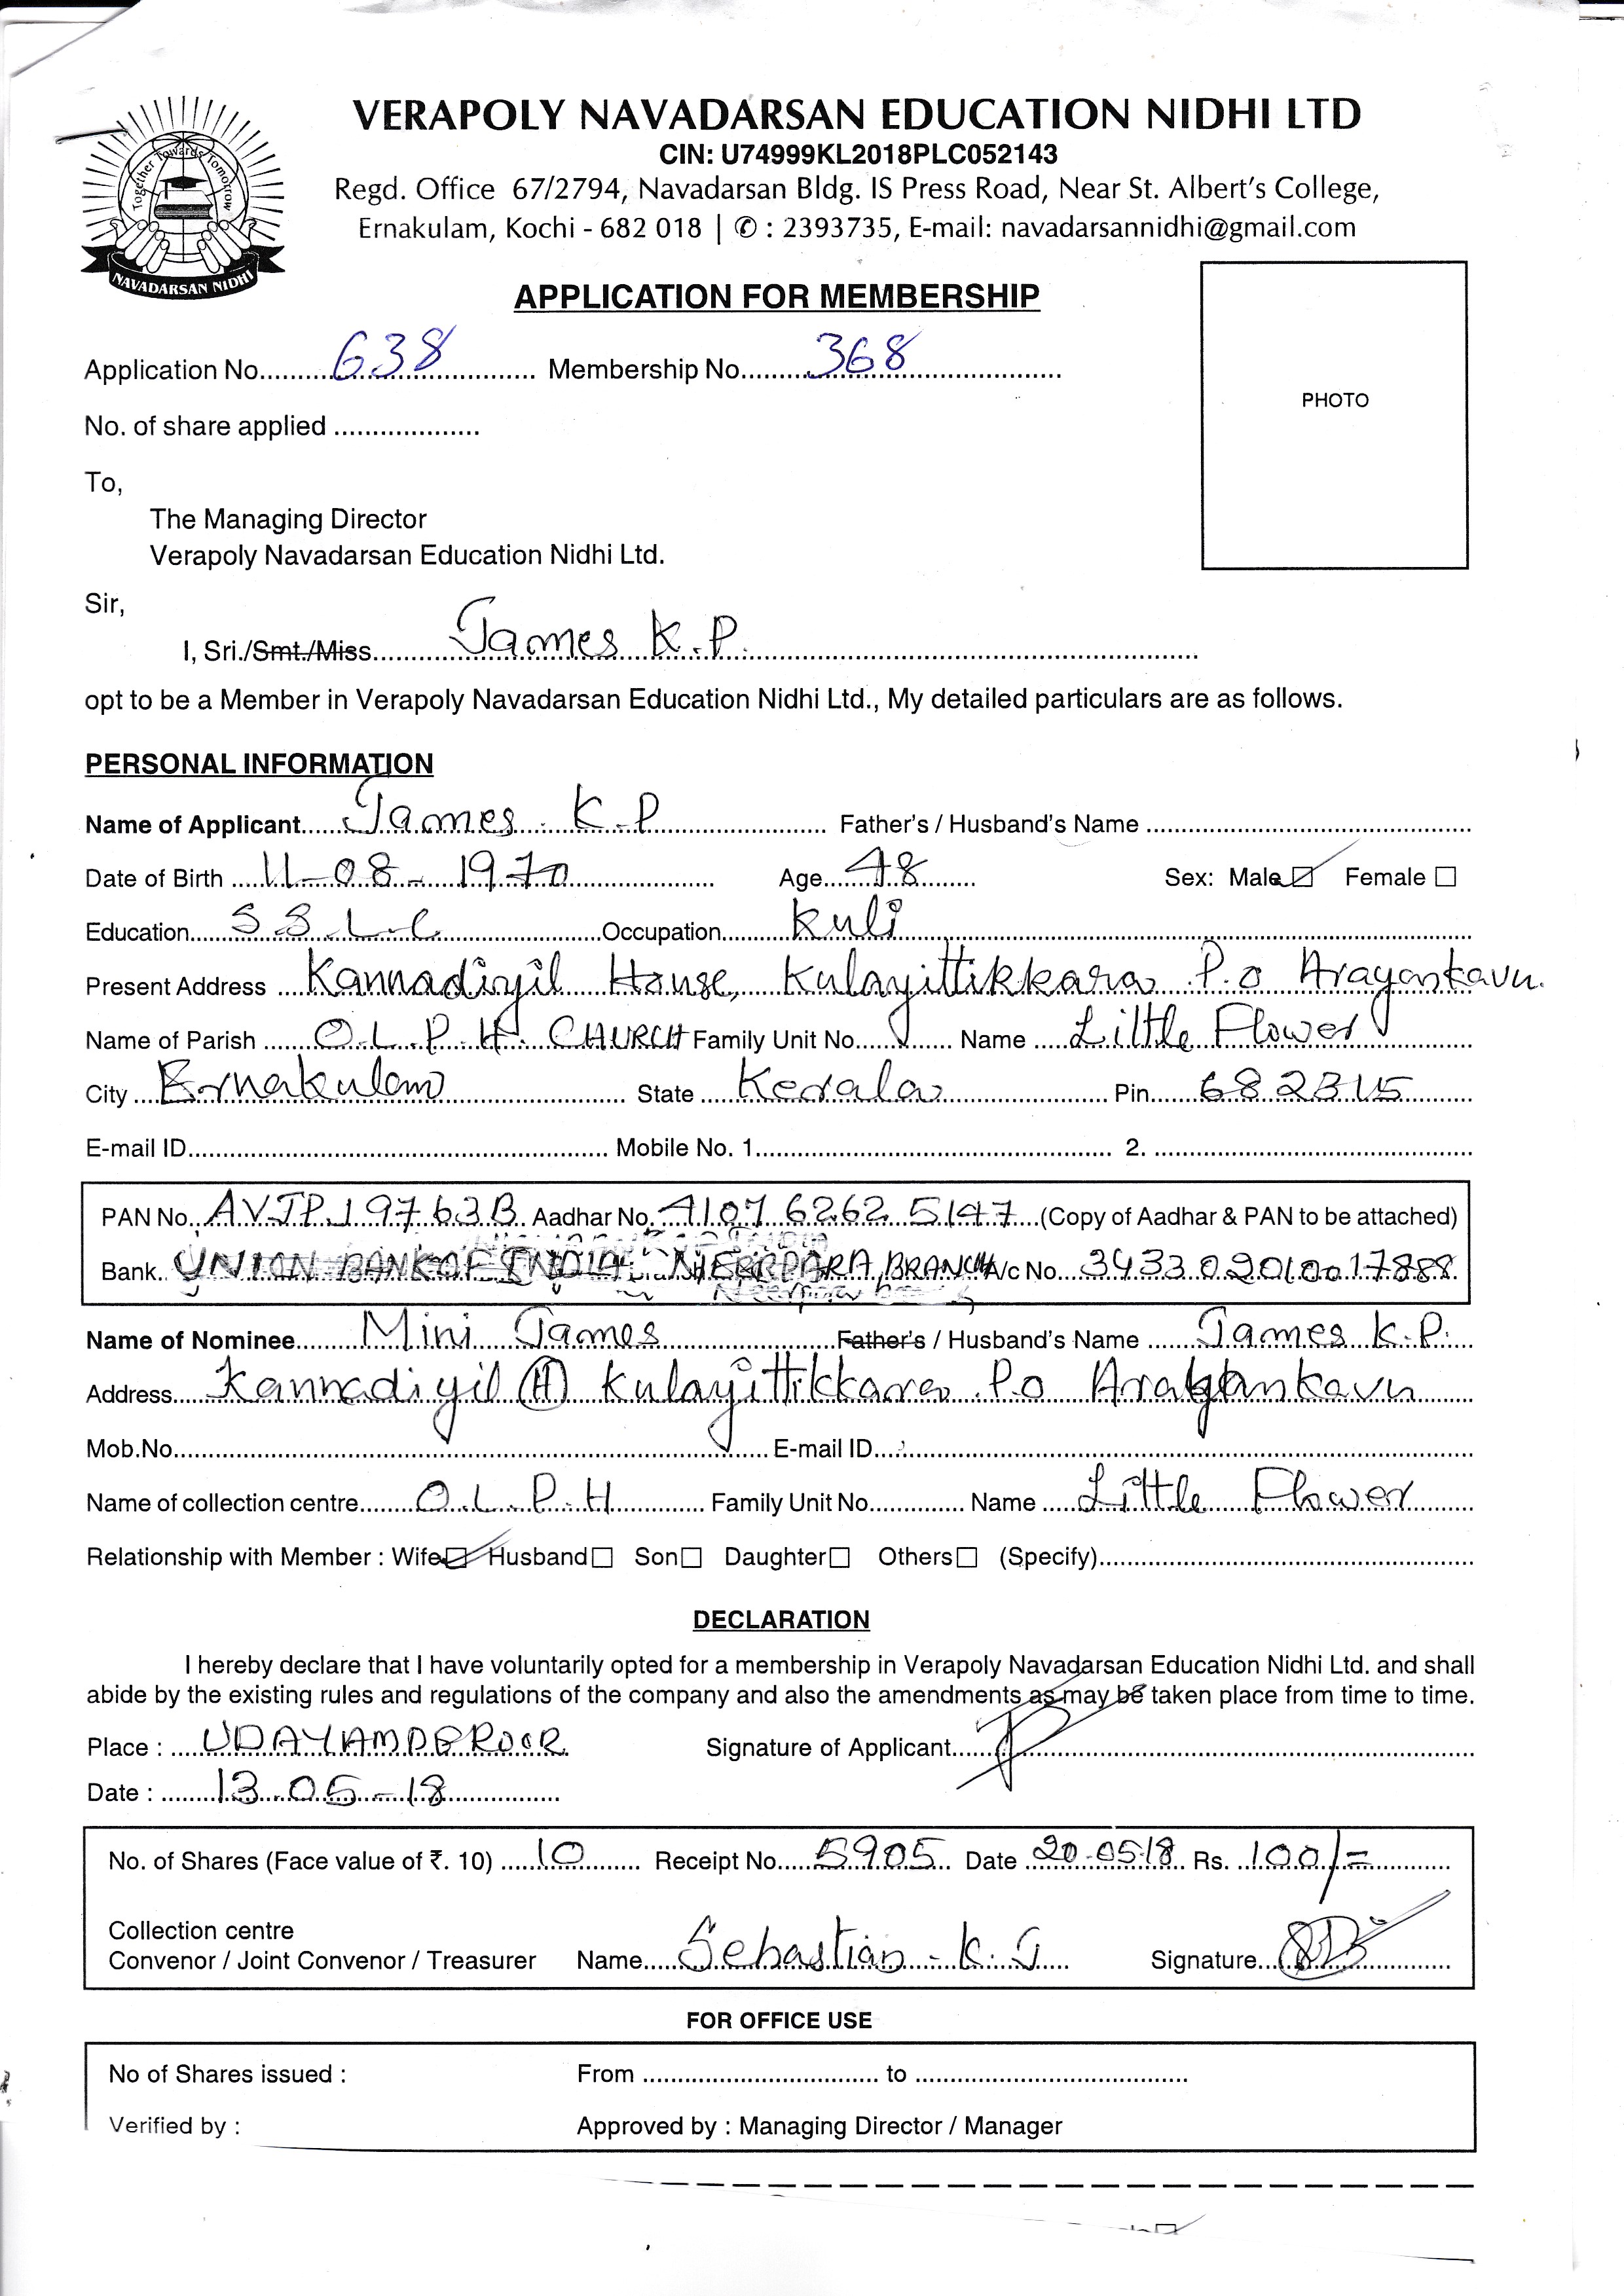 Together Towards Tomorrow
NAVADARSAN NIDHI
VERAPOLY NAVADARSAN EDUCATION NIDHI LTD
CIN: U74999KL2018PLC052143
Regd. Office 67/2794, Navadarsan Bldg. IS Press Road, Near St. Albert's College,
Ernakulam, Kochi - 682 018 | ✆ : 2393735, E-mail: navadarsannidhi@gmail.com
APPLICATION FOR MEMBERSHIP
PHOTO
Application No. 638 Membership No. 368
No. of share applied
To,
The Managing Director
Verapoly Navadarsan Education Nidhi Ltd.
Sir,
I, Sri./Smt./Miss James K.P.
opt to be a Member in Verapoly Navadarsan Education Nidhi Ltd., My detailed particulars are as follows.
PERSONAL INFORMATION
Name of Applicant James K.P Father's / Husband's Name
Date of Birth 11-08-1970 Age 48 Sex: Male ☑ Female ☐
Education S S L C Occupation Kuli
Present Address Kannadiyil House, Kulayittikkara P.o Arayankavu.
Name of Parish O.L.P.H. CHURCH Family Unit No. Name Little Flower
City Ernakulam State Kerala Pin 682315
E-mail ID Mobile No. 1 2.
PAN No. AVJPJ9763B Aadhar No. 4107 6262 5147 (Copy of Aadhar & PAN to be attached)
Bank UNION BANK OF INDIA NEERPARA BRANCH A/c No. 343302010017888
Name of Nominee Mini James Father's / Husband's Name James K.P.
Address Kannadiyil (H) Kulayittikkara P.o Arayankavu
Mob.No. E-mail ID
Name of collection centre O.L.P.H Family Unit No. Name Little Flower
Relationship with Member : Wife ☑ Husband ☐ Son ☐ Daughter ☐ Others ☐ (Specify)
DECLARATION
I hereby declare that I have voluntarily opted for a membership in Verapoly Navadarsan Education Nidhi Ltd. and shall
abide by the existing rules and regulations of the company and also the amendments as may be taken place from time to time.
Place : UDAYAMPEROOR Signature of Applicant
Date : 13-05-18
No. of Shares (Face value of ₹. 10) 10 Receipt No. 5905 Date 20-05-18 Rs. 100/=
Collection centre
Convenor / Joint Convenor / Treasurer Name Sebastian - K.J Signature
FOR OFFICE USE
No of Shares issued : From to
Verified by : Approved by : Managing Director / Manager